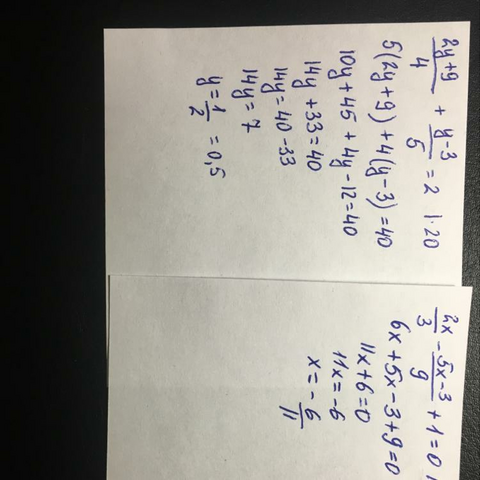 (2y+9)/4 + (y-3)/5 = 2 |·20
5(2y+9)+4(y-3)=40
10y+45+4y-12=40
14y+33=40
14y=40-33
14y=7
y=1/2=0,5
2x/3 - (5x-3)/9 + 1=0 |
6x+5x-3+9=0
11x+6=0
11x=-6
x=-6/11